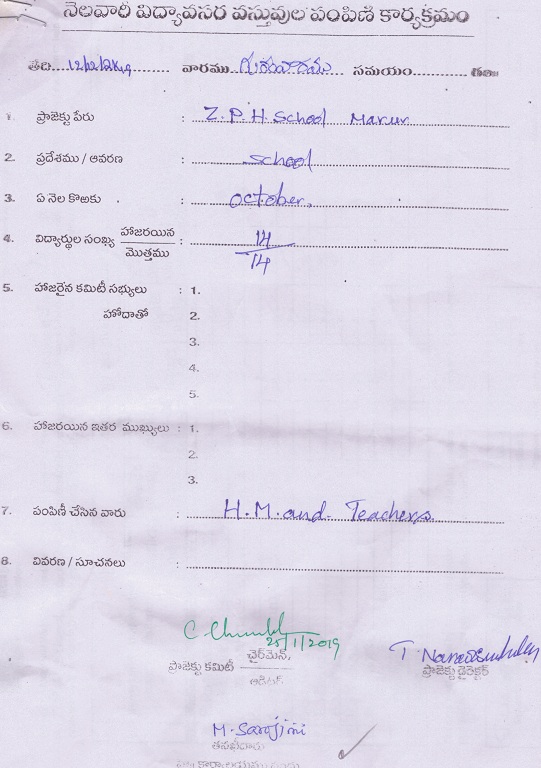 నెలవారీ విద్యావసర వస్తువుల పంపిణీ కార్యక్రమం
తేది 12/12/2018 వారము గురువారము సమయం
1. ప్రాజెక్టు పేరు : Z.P.H.School Marur
2. ప్రదేశము / ఆవరణ : School
3. ఏ నెల కొఱకు : October.
4. విద్యార్థుల సంఖ్య హాజరయిన : 14
మొత్తము 14
5. హాజరైన కమిటీ సభ్యులు : 1.
హోదాతో 2.
3.
4.
5.
6. హాజరయిన ఇతర ముఖ్యులు : 1.
2.
3.
7. పంపిణీ చేసిన వారు : H.M. and Teachers
8. వివరణ / సూచనలు :
25/1/2019
ఛైర్‌మెన్,
ప్రాజెక్టు కమిటీ
ఆడిటర్
ప్రాజెక్టు డైరెక్టర్
M. Sarojini